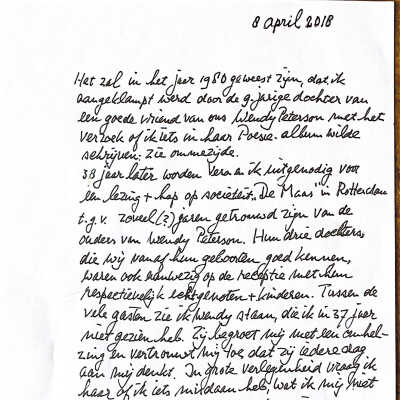 8 april 2018
Het zal in het jaar 1980 geweest zijn, dat ik
aangeklampt werd door de 9-jarige dochter van
een goede vriend van ons Wendy Peterson met het
verzoek of ik iets in haar Poesie-album wilde
schrijven. Zie ommezijde.
38 jaar later worden Vera en ik uitgenodigd voor
een lezing + hap op societeit "De Maas" in Rotterdam
t.g.v. zoveel (?) jaren getrouwd zijn van de
ouders van Wendy Peterson. Hun drie dochters,
die wij vanaf hun geboorten goed kennen,
waren ook aanwezig op de receptie met hun
respectievelijk echtgenoten + kinderen. Tussen de
vele gasten zie ik Wendy staan, die ik in 37 jaar
niet gezien heb. Zij begroet mij met een omhel-
zing en vertrouwt mij toe dat zij iedere dag
aan mij denkt. In grote verlegenheid vraag ik
haar of ik iets misdaan heb, wat ik mij niet